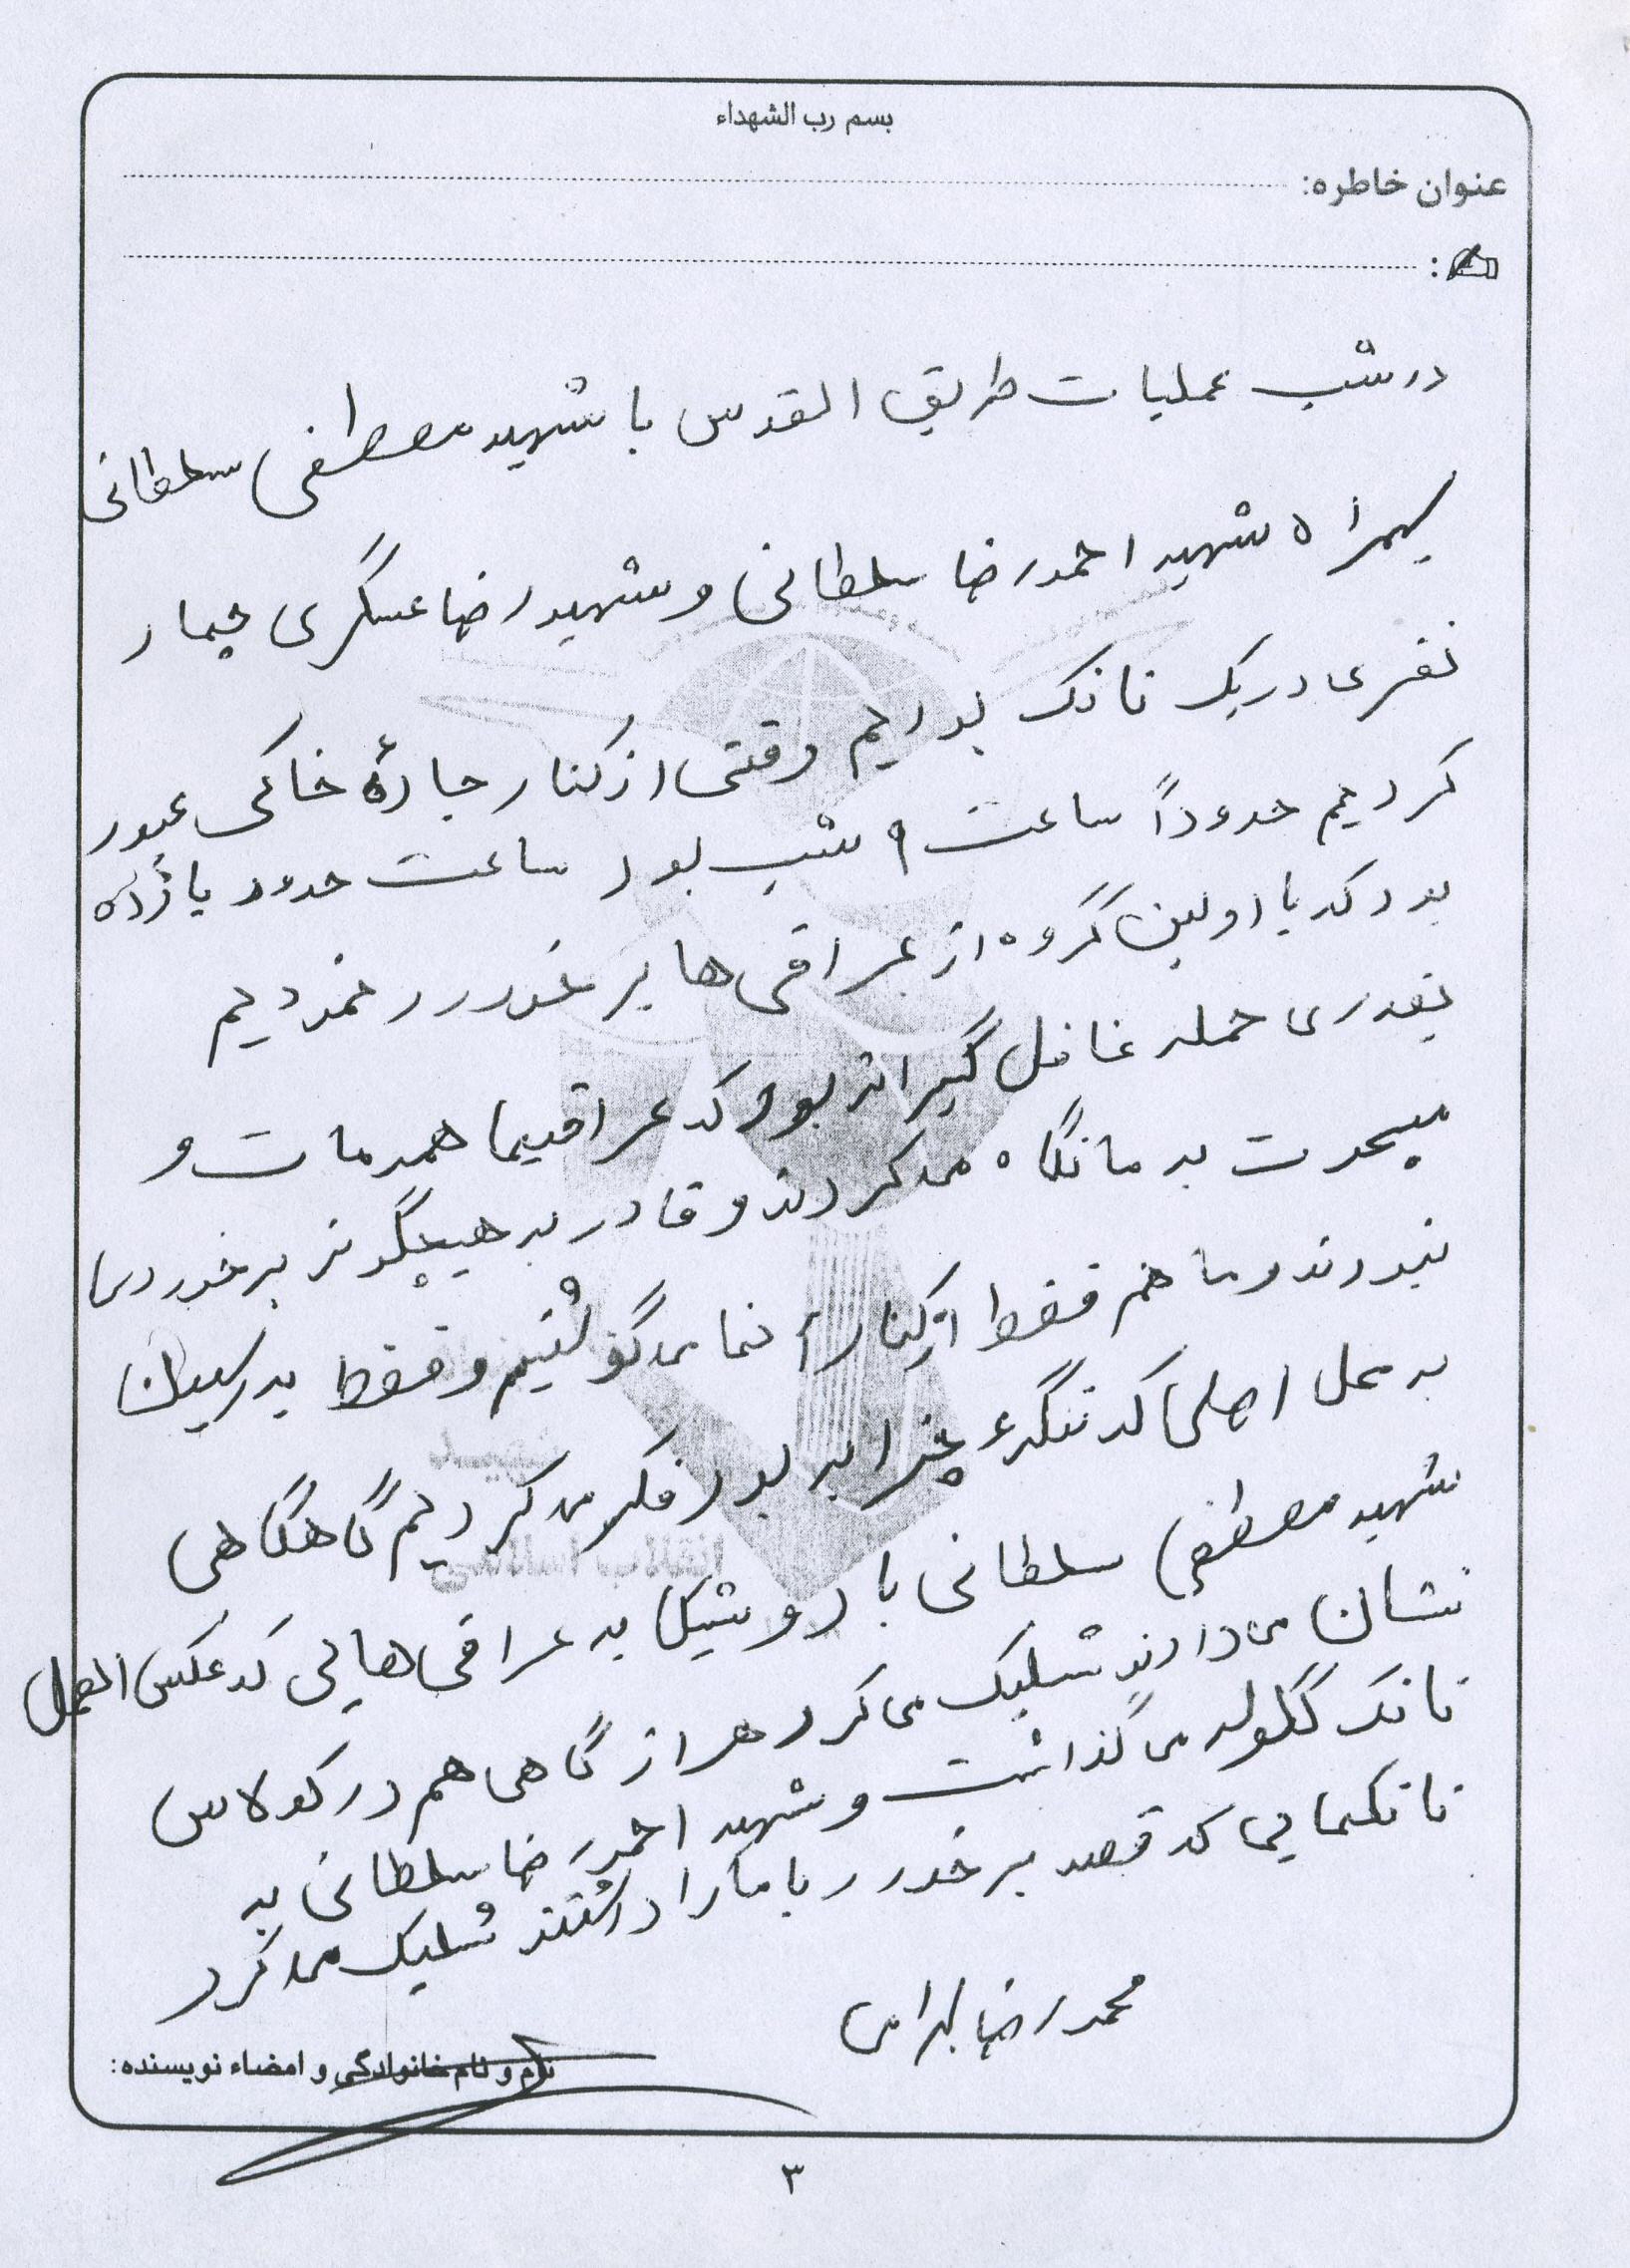 بسم رب الشهداء
عنوان خاطره:
در شب عملیات طریق القدس با شهید مصطفی سلطانی
بهمراه شهید احمدرضا سلطانی و شهید رضا عسگری چهار
نفری در یک تانک بودیم وقتی از کنار جادهٔ خاکی عبور
کردیم حدوداً ساعت ۹ شب بود ساعت حدود یازده
بود که با اولین گروه از عراقی ها برخورد نمودیم
بقدری حمله غافل گیرانه بود که عراقیها همه مات و
مبحوت به ما نگاه می کردند و قادر به هیچگونه برخوردی
نبودند و ما هم فقط از کنار آنها می گذشتیم و فقط به رسیدن
به محل اصلی که تنگه چزابه بود فکر می کردیم گاهگاهی
شهید مصطفی سلطانی با دوشیکا به عراقی هایی که عکس العمل
نشان می دادند شلیک می کرد هر از گاهی هم در کولاس
تانک گلوله می گذاشت و شهید احمدرضا سلطانی به
تانکهایی که قصد برخورد با ما را داشتند شلیک می کرد
محمدرضا
نام و نام خانوادگی و امضاء نویسنده:
۳